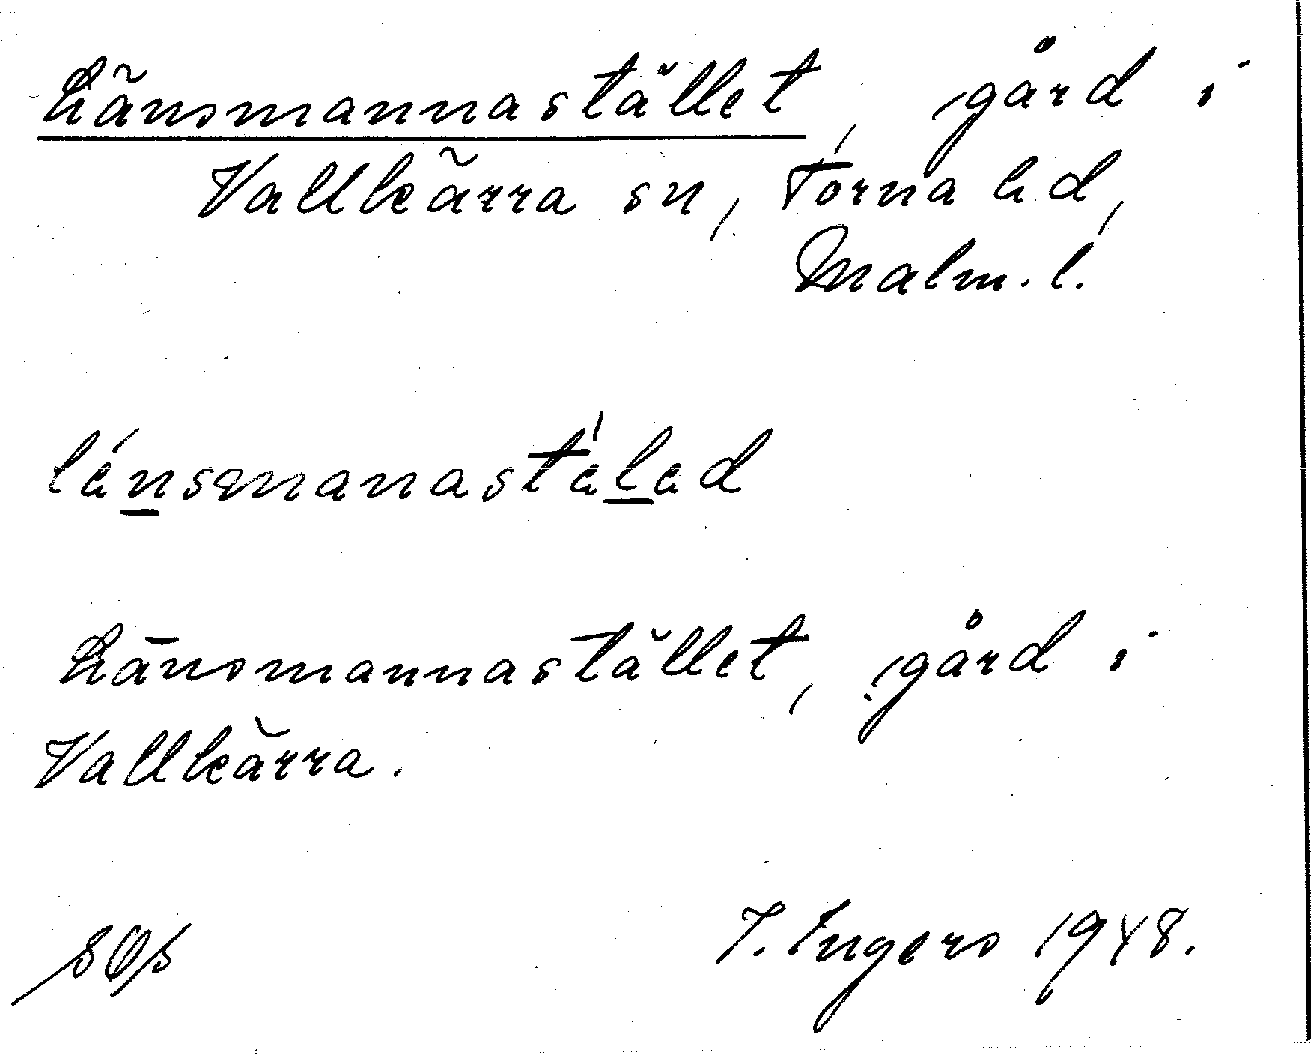 Länsmannastället, gård i
Vallkärra sn, Torna hd,
Malm. l.
lénsmanastéled
Länsmannastället, gård i
Vallkärra.
I. Ingers 1948.